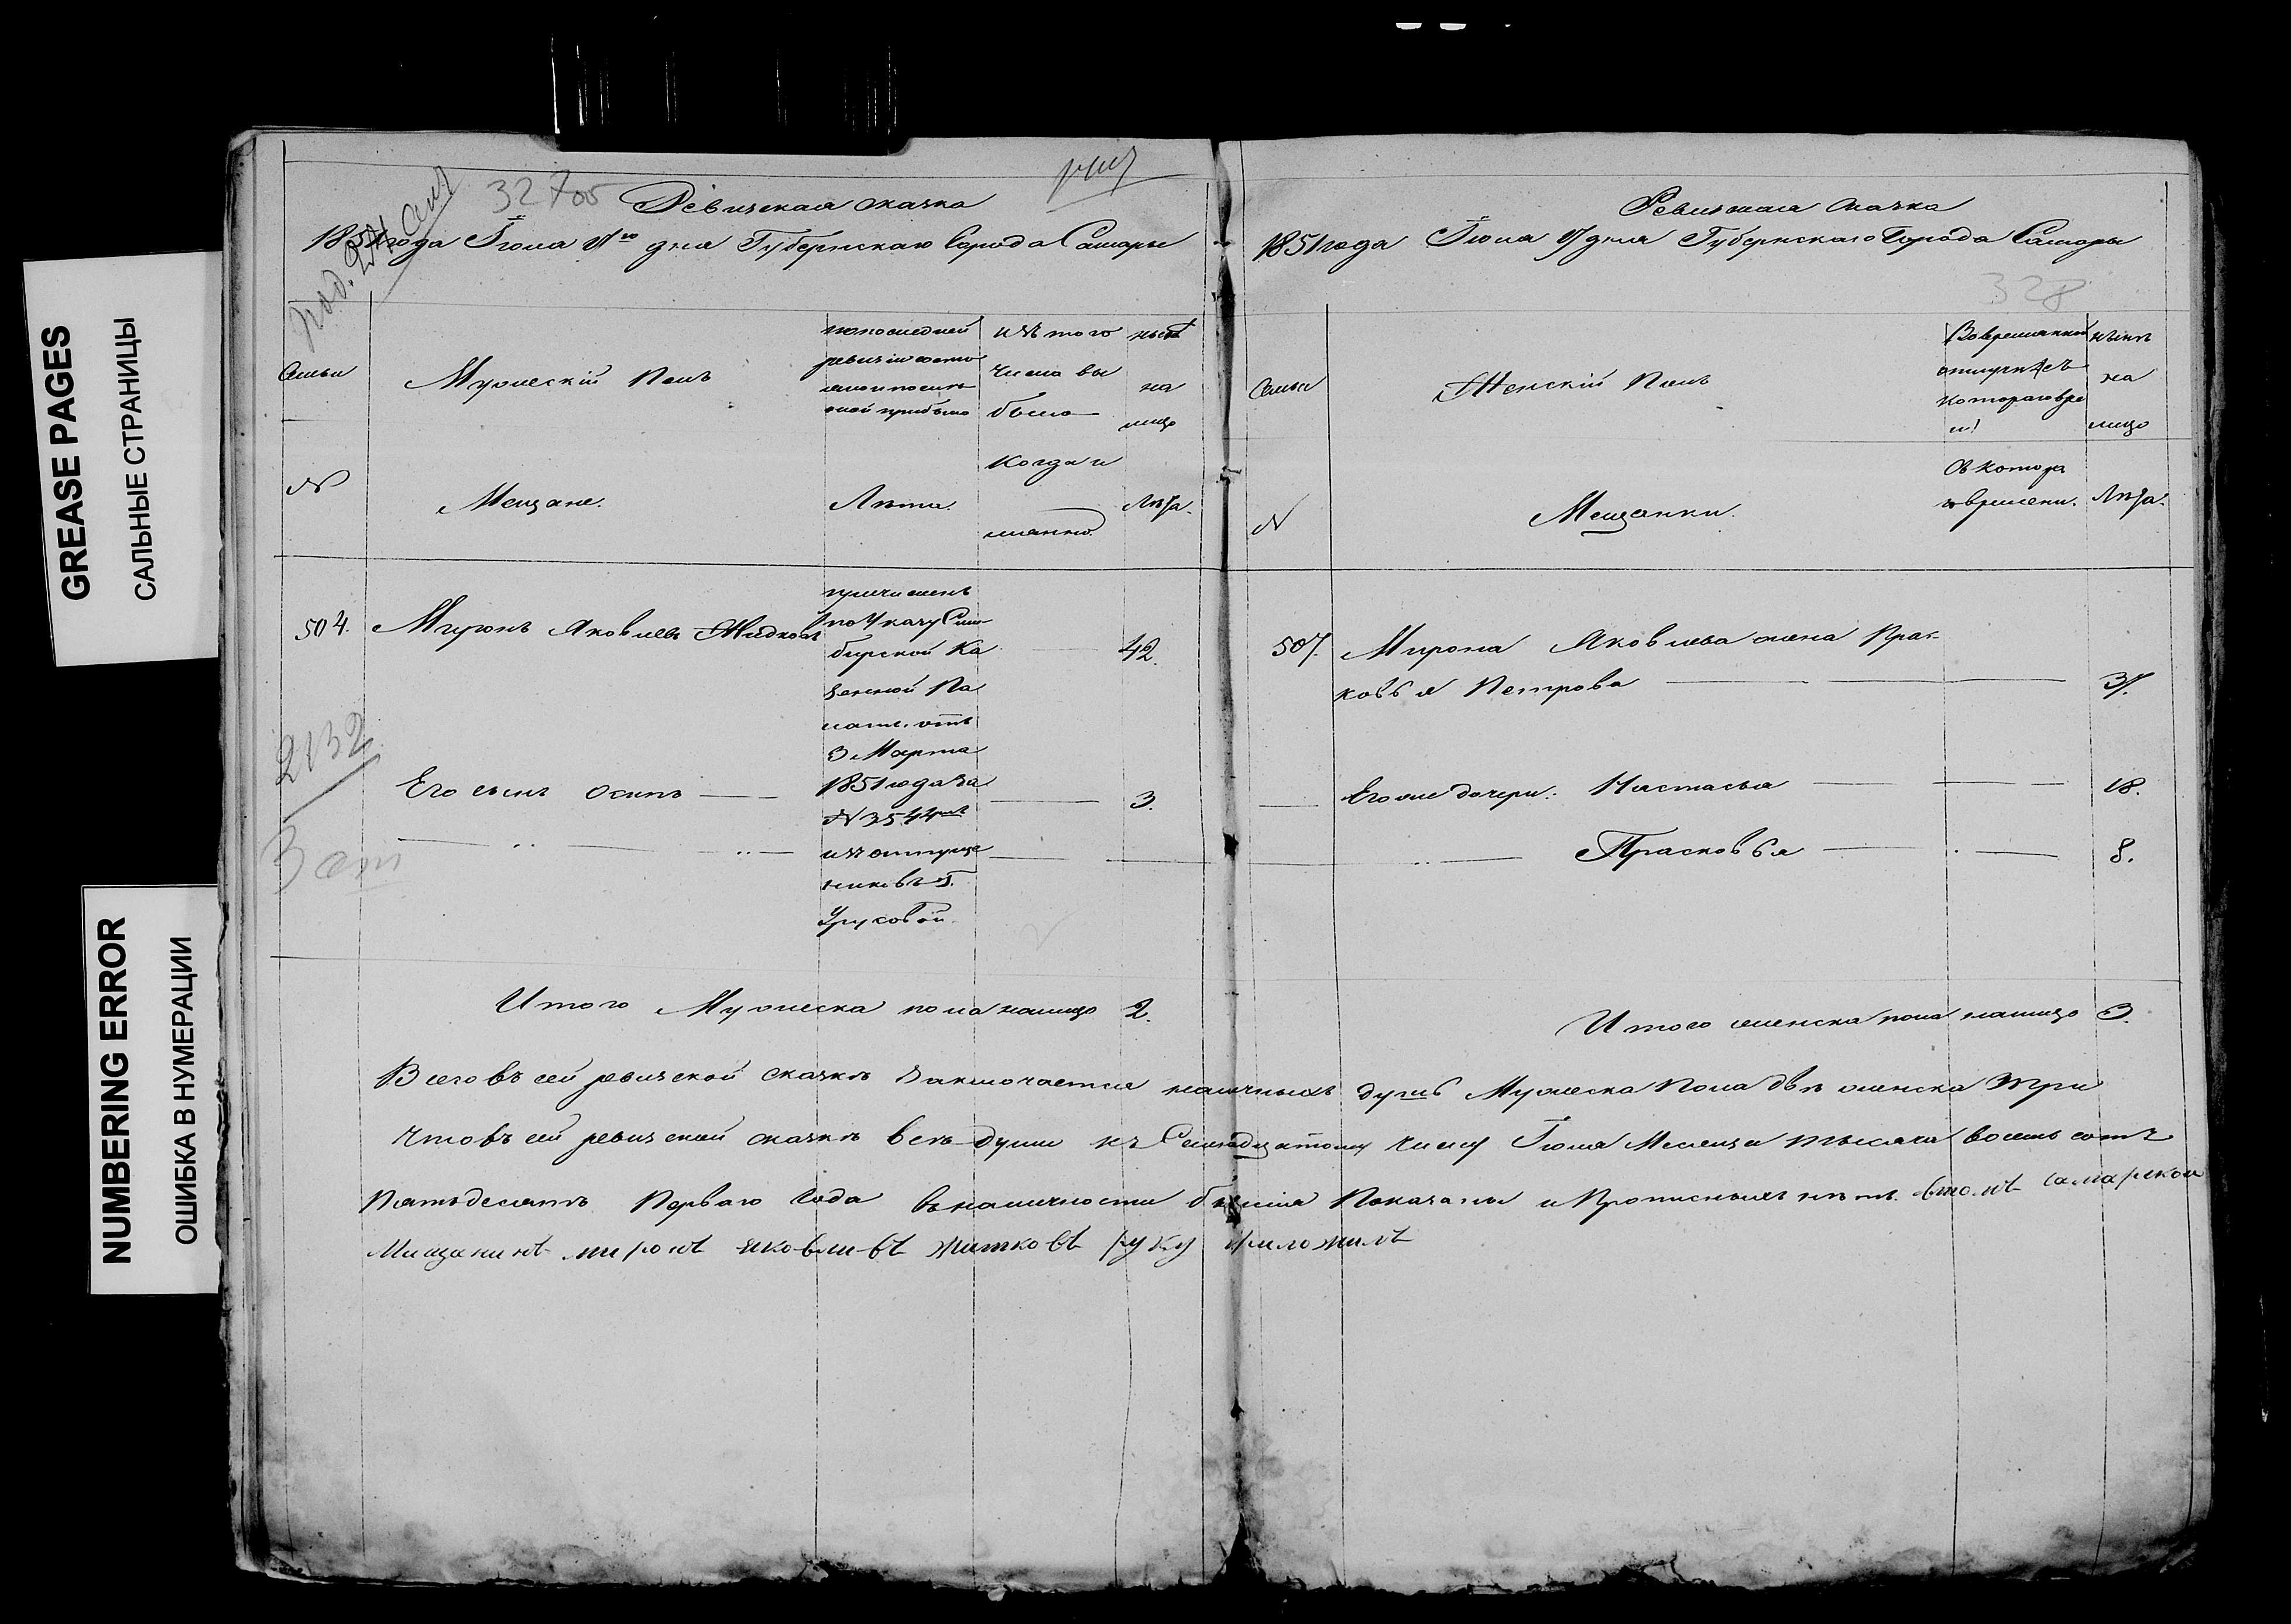 GREASE PAGES
САЛЬНЫЕ СТРАНИЦЫ
NUMBERING ERROR
ОШИБКА В НУМЕРАЦИИ
327об
Ревизская сказка
1851 года Іюля 17го дня Губернскаго Города Самары
Семьи
Мужескій Полъ
по последней ревизіи состояло и после оной прибыло
изъ того числа выбыло
ныне на лицо
когда и
№
Мещане.
Лета.
именно.
Лета.
504.
Миронъ Яковлевъ Жидковъ
42.
причисленъ
по Указу Сим
бирской Ка
зенной Па
латы отъ
3 Марта
1851 года за
№ 3544мъ
изъ отпуще
никовъ Г.
Его сынъ Осипъ
3.
2132
Итого Мужеска пола налицо 2.
Ревизская Сказка
1851 года Іюля 17 дня Губернскаго Города Самары
328
Семьи
Женскій Полъ
Во временной
отлучкѣ съ
котораго вре
ныне
на
лицо
№
Мещанки.
времени.
Лета.
507.
Мирона Яковлева жена Прас
ковья Петрова
37.
Его же дочери: Настасья
18.
Прасковья
8.
Итого женска пола налицо 3.
Всего въ сей ревизской сказкѣ заключается наличныхъ душъ Мужеска Пола двѣ женска три
Что въ сей ревизской сказкѣ всѣ души къ Семнадцатому числу Іюля Месеца тысяча восемь сотъ
Пятьдесятъ Перваго Года въ наличности бывшія Показаны и Прописныхъ нѣтъ. втомъ самарской
Мищанинъ миронъ яковливъ житковъ руку приложилъ